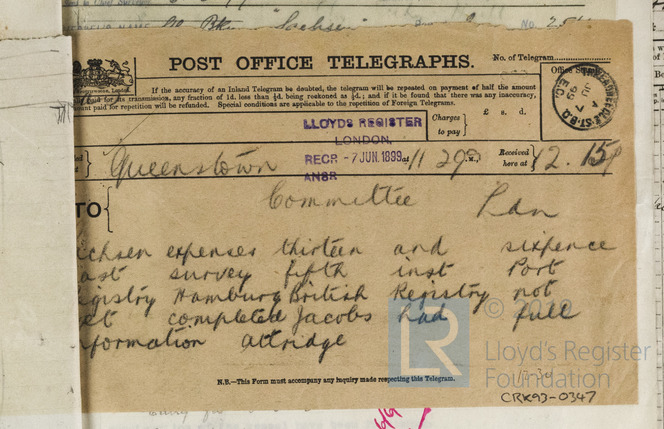 NAME Bk "Sachsen" No.
POST OFFICE TELEGRAPHS.
No. of Telegram
If the accuracy of an Inland Telegram be doubted, the telegram will be repeated on payment of half the amount
paid for its transmission, any fraction of 1d. less than ½d. being reckoned as ½d.; and if it be found that there was any inaccuracy,
amount paid for repetition will be refunded. Special conditions are applicable to the repetition of Foreign Telegrams.
Office Stamp
THREADNEEDLE ST. B.O.
E.C.
A
JU 7
99
Charges to pay
£ s. d.
LLOYDS REGISTER
LONDON,
RECR -7 JUN. 1899
ANSR
Queenstown
at 11 29 M.,
Received here at
12.15
TO
Committee Ldn
chsen expenses thirteen and sixpence
ast survey fifth inst Port
egistry Hamburg British Registry not
et completed Jacobs had full
nformation Attridge
N.B.—This Form must accompany any inquiry made respecting this Telegram.
LR
© 2019
Lloyd's Register
Foundation
CRK93-0347